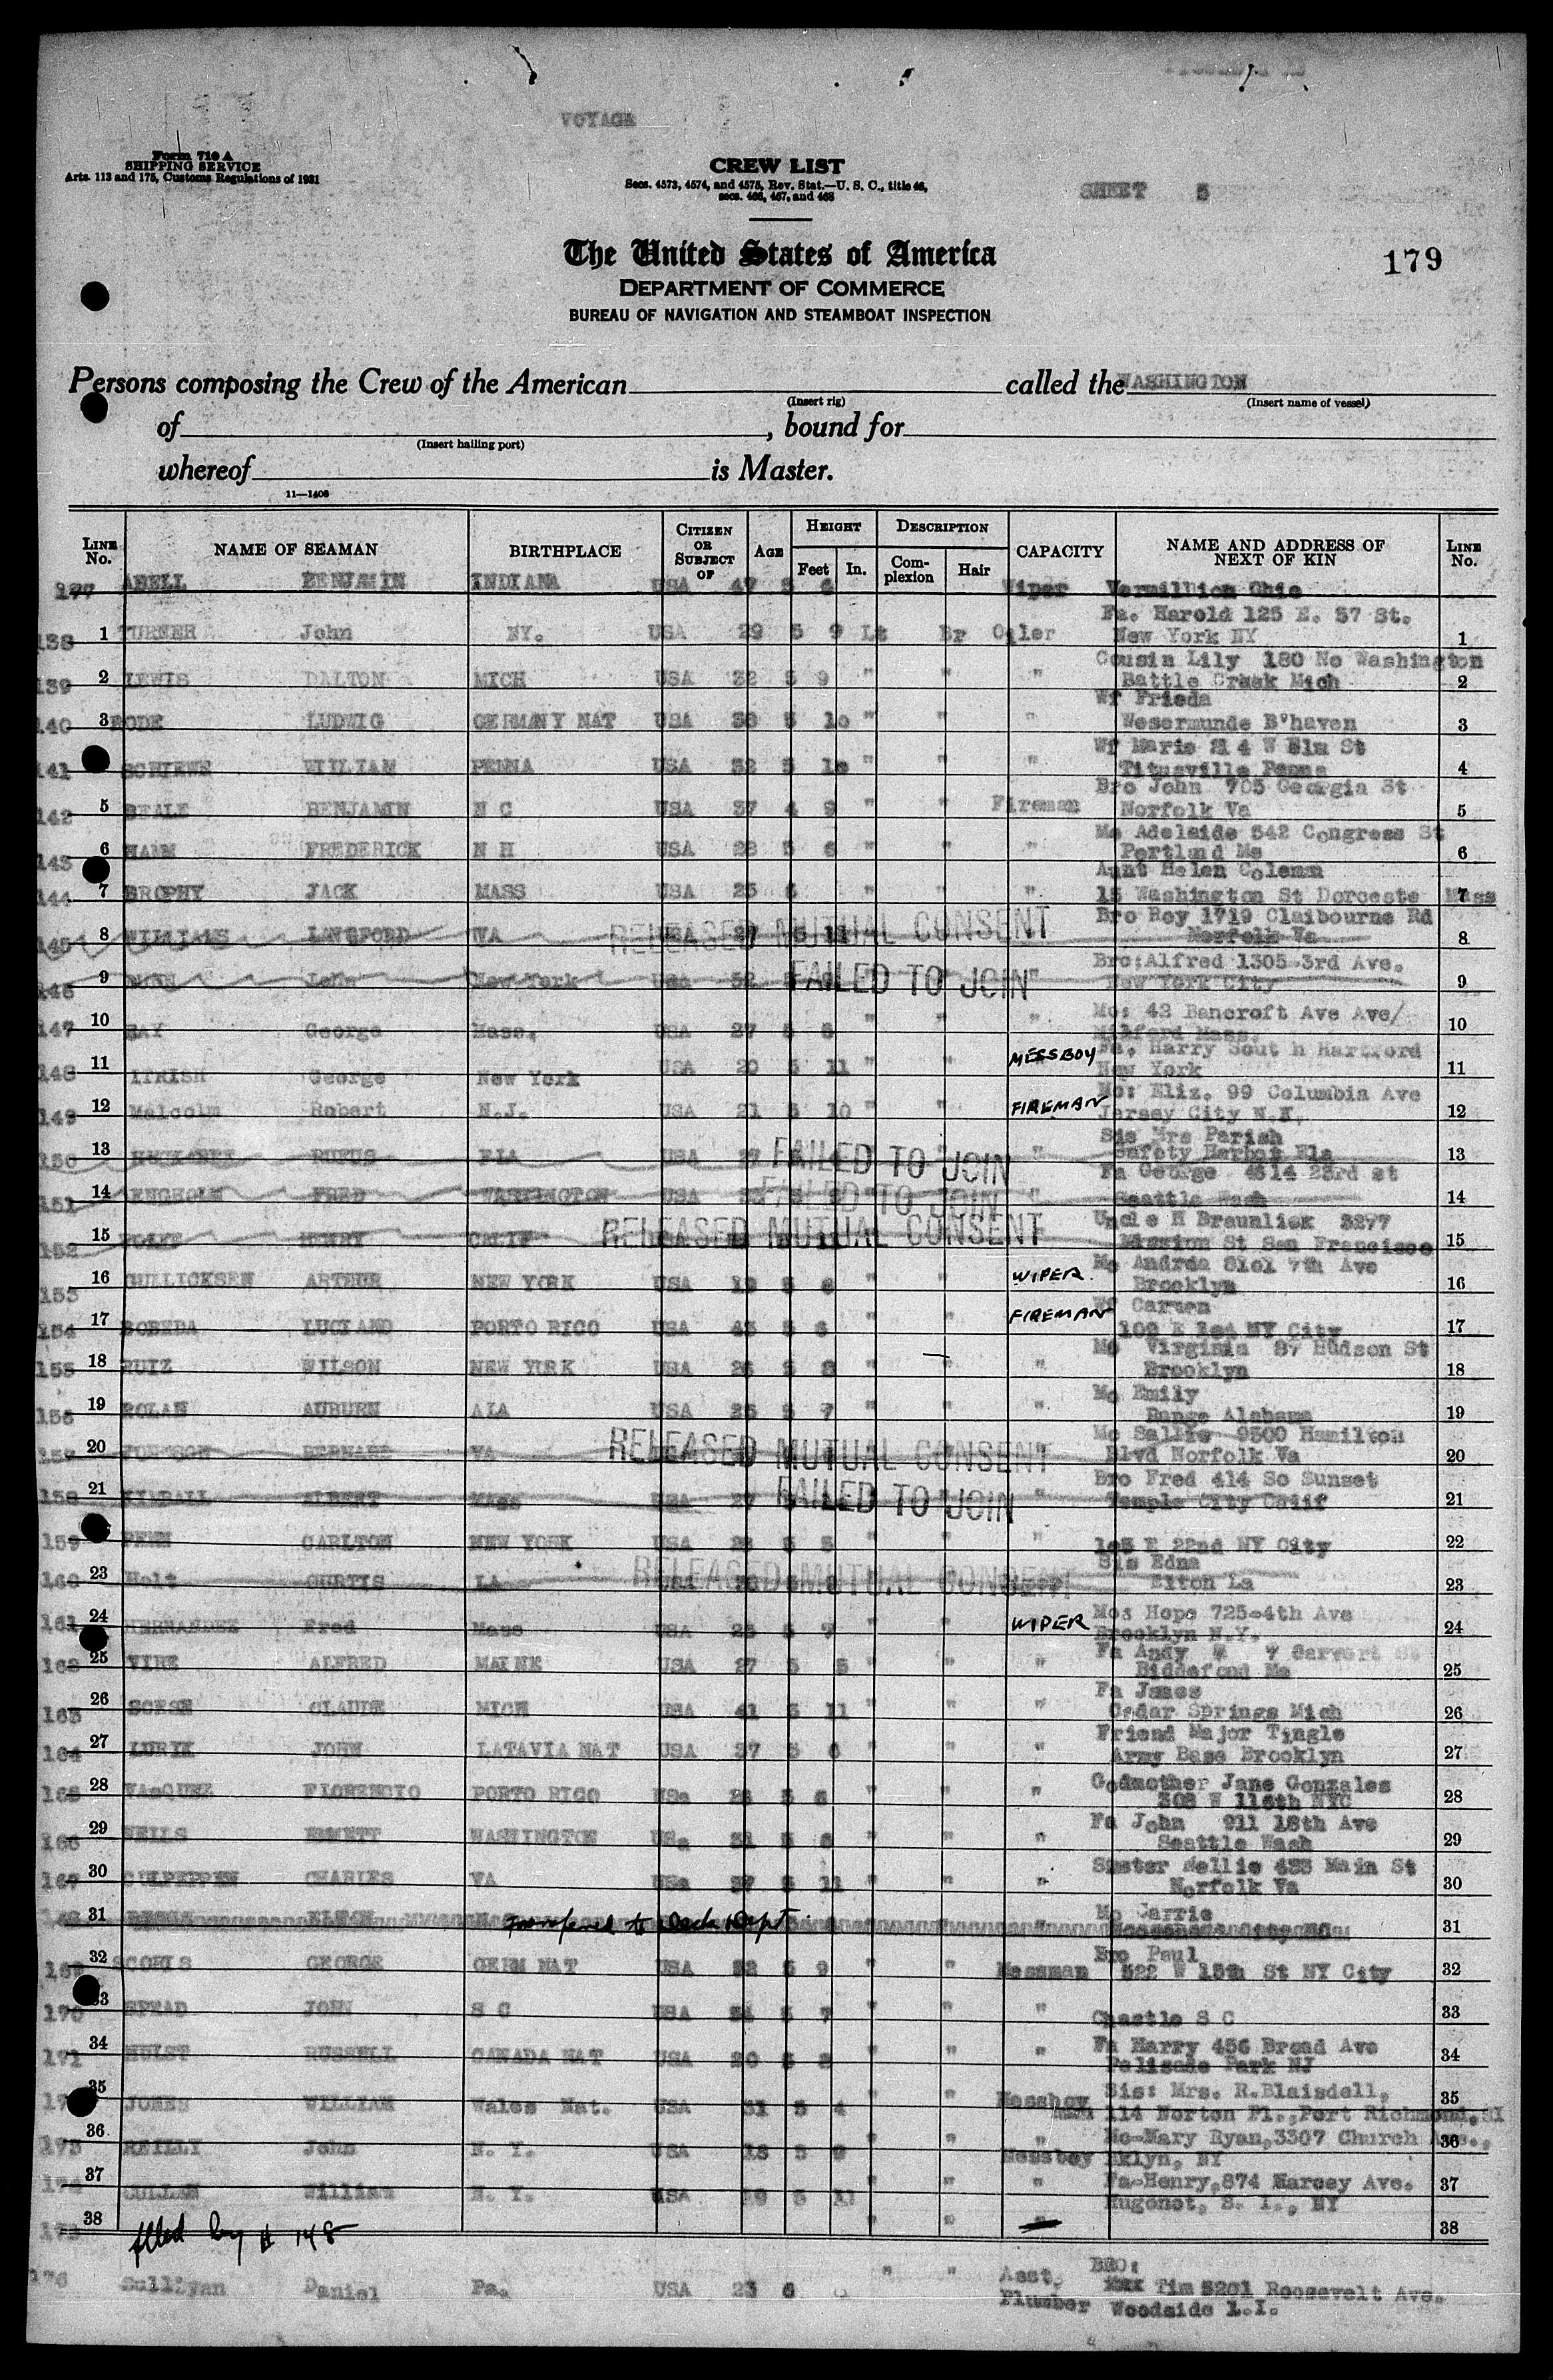 VOYAGE
Form 710 A
SHIPPING SERVICE
Arts. 113 and 175, Customs Regulations of 1931
CREW LIST
Secs. 4573, 4574, and 4575, Rev. Stat.—U. S. C., title 46,
secs. 466, 467, and 468
SHEET 5
The United States of America
179
DEPARTMENT OF COMMERCE
BUREAU OF NAVIGATION AND STEAMBOAT INSPECTION
Persons composing the Crew of the American called the WASHINGTON
(Insert rig) (Insert name of vessel)
of , bound for
(Insert hailing port)
whereof is Master.
11—1406
LINE No. NAME OF SEAMAN BIRTHPLACE CITIZEN OR SUBJECT OF AGE HEIGHT Feet In. DESCRIPTION Complexion Hair CAPACITY NAME AND ADDRESS OF NEXT OF KIN LINE No.
177 ABELL BENJAMIN INDIANA USA 47 5 Wiper Vermillion Ohio
Fa. Harold 125 E. 57 St.
138 1 TURNER John NY. USA 29 5 9 Lt Br Oiler New York NY 1
Cousin Lily 180 No Washington
139 2 LEWIS DALTON MICH USA 32 5 9 " " " Battle Creek Mich 2
Wf Frieda
140 3 BODE LUDWIG GERMANY NAT USA 5 10 " " " Wesermunde B'haven 3
Wf Marie 214 W Elm St
141 WILLIAM PENNA USA 32 5 10 " " " Titusville Penna 4
Bro John 705 Georgia St
142 5 BEALE BENJAMIN N C USA 37 4 9 " " Fireman Norfolk Va 5
Mo Adelaide 542 Congress St
143 6 HAMM FREDERICK N H USA 28 5 6 " " " Portland Me 6
Aunt Helen Coleman
144 7 BROPHY JACK MASS USA 25 6 " " " 15 Washington St Dorceste Mass 7
Bro Roy 1719 Claibourne Rd
145 8 WILLIAMS LANGFORD VA RELEASED MUTUAL CONSENT USA 27 5 11 Norfolk Va 8
Bro:Alfred 1305-3rd Ave.
146 9 New York USA 52 5 FAILED TO JOIN " New York City 9
Mo: 42 Bancroft Ave Ave/
147 10 George Mass. USA 27 5 " " " Milford Mass. 10
Fa. Harry South Hartford
148 11 George New York USA 20 5 11 " " MESSBOY New York 11
Mo: Eliz. 99 Columbia Ave
149 12 Malcolm Robert N.J. USA 21 5 10 " " FIREMAN Jersey City 12
Sis Mrs Parish
150 13 HUCKABEE RUFUS FLA USA 27 FAILED TO JOIN " Safety Harbor Fla 13
Fa George 4614 23rd st
151 14 ENGHOLM FRED WASHINGTON USA FAILED TO JOIN " Seattle Wash 14
Uncle H Braunliek 3277
152 15 HENRY CALIF RELEASED MUTUAL CONSENT Mission St San Francisco 15
Mo Andrea 8101 7th Ave
153 16 GULLICKSEN ARTHUR NEW YORK USA 19 5 " " WIPER Brooklyn 16
Wf Carmen
154 17 BOBEDA LUCIANO PORTO RICO USA 5 6 " " FIREMAN NY City 17
Mo Virginia 87 Hudson St
155 18 RUIZ WILSON NEW YORK USA 26 5 8 " " " Brooklyn 18
Mo Emily
156 19 ROLAN AUBURN ALA USA 25 5 7 " " " Range Alabama 19
Mo Sallie 9500 Hamilton
20 BERNARD VA RELEASED MUTUAL CONSENT " Blvd Norfolk Va 20
Bro Fred 414 So Sunset
158 21 KIMBALL ALBERT Mass USA 27 FAILED TO JOIN " Temple City Calif 21
159 PENN CARLTON NEW YORK USA 5 5 " " " E 22nd NY City 22
Sis Edna
160 23 Holt CURTIS LA RELEASED MUTUAL CONSENT Elton La 23
Mo: Hope 725-4th Ave
161 24 HERNANDEZ Fred Mass USA 5 7 " " WIPER Brooklyn N.Y. 24
Fa Andy
162 25 VIRE ALFRED MAINE USA 27 5 5 " " " Biddeford Me 25
Fa James
163 26 CLAUDE MICH USA 41 5 11 " " " Cedar Springs Mich 26
Friend Major Tingle
164 27 LURIK JOHN LATAVIA NAT USA 37 5 6 " " " Army Base Brooklyn 27
Godmother Jane Gonzales
165 28 VAsQUEZ FLORENCIO PORTO RICO USa 5 " " " 308 W NYC 28
Fa John 911 18th Ave
166 29 WASHINGTON USa 5 " " " Seattle Wash 29
Sister Nellie 433 Main St
167 30 CULPEPPER CHARLES VA USa 37 5 11 " " " Norfolk Va 30
Mo Carrie
31 Transferred to Deck Dept. 31
Bro Paul
169 32 GEORGE GERM NAT USA 5 9 " " Messman 522 W 15th St NY City 32
170 33 JOHN S C USA 5 7 " " " S C 33
Fa Harry 456 Broad Ave
171 34 HULST RUSSELL CANADA NAT USA 20 5 8 " " " Palisade Park NJ 34
Sis: Mrs. R.Blaisdell,
35 JONES WILLIAM Wales Nat. USA 31 5 4 " " Messboy 114 Norton Pl.,Port Richmond,SI 35
Mo-Mary Ryan,3307 Church Ave.,
173 36 REILLY John N. Y. USA 18 5 " " " Messboy Bklyn, NY 36
Fa-Henry,874 Marcey Ave.
174 37 CULLEN William N. Y. USA 19 5 11 " " " Hugonot, S. I., NY 37
175 38 filled by # 148 " " 38
BRO:
176 Sullivan Daniel Pa. USA 23 6 " " Asst. Plumber Tim 5201 Roosevelt Ave.
Woodside L.I.